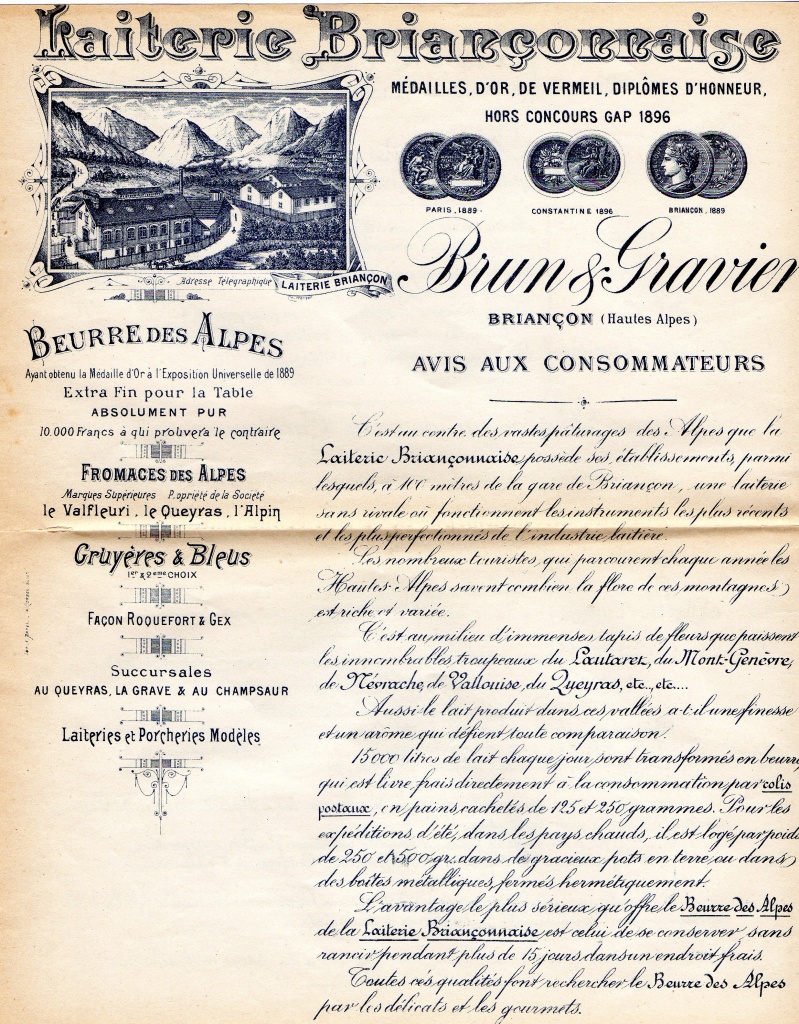 Laiterie Briançonnaise
MÉDAILLES, D'OR, DE VERMEIL, DIPLÔMES D'HONNEUR,
HORS CONCOURS GAP 1896
PARIS. 1889.
CONSTANTINE 1896
BRIANÇON. 1889
Adresse Télégraphique LAITERIE BRIANÇON
Brun & Gravier
BRIANÇON (Hautes Alpes)
BEURRE DES ALPES
Ayant obtenu la Médaille d'Or à l'Exposition Universelle de 1889
Extra Fin pour la Table
ABSOLUMENT PUR
10.000 Francs à qui prouvera le contraire
FROMAGES DES ALPES
Marques Supérieures Propriété de la Société
le Valfleuri, le Queyras, l'Alpin
Gruyères & Bleus
1er & 2ème CHOIX
FAÇON ROQUEFORT & GEX
Succursales
AU QUEYRAS, LA GRAVE & AU CHAMPSAUR
Laiteries et Porcheries Modèles
AVIS AUX CONSOMMATEURS
C'est au centre des vastes pâturages des Alpes que la
Laiterie Briançonnaise possède ses établissements, parmi
lesquels, à 100 mètres de la gare de Briançon, une laiterie
sans rivale où fonctionnent les instruments les plus récents
et les plus perfectionnés de l'industrie laitière.
Les nombreux touristes, qui parcourent chaque année les
Hautes-Alpes savent combien la flore de ces montagnes
est riche et variée.
C'est au milieu d'immenses tapis de fleurs que paissent
les innombrables troupeaux du Lautaret, du Mont-Genèvre,
de Névrache, de Vallouise, du Queyras, etc., etc....
Aussi le lait produit dans ces vallées a-t-il une finesse
et un arôme qui défient toute comparaison.
15000 litres de lait chaque jour sont transformés en beurre
qui est livré frais directement à la consommation par colis
postaux, en pains cachetés de 125 et 250 grammes. Pour les
expéditions d'été, dans les pays chauds, il est logé par poids
de 250 et 500 gr. dans de gracieux pots en terre ou dans
des boîtes métalliques, fermés hermétiquement.
L'avantage le plus sérieux qu'offre le Beurre des Alpes
de la Laiterie Briançonnaise est celui de se conserver sans
rancir pendant plus de 15 jours dans un endroit frais.
Toutes ces qualités font rechercher le Beurre des Alpes
par les délicats et les gourmets.